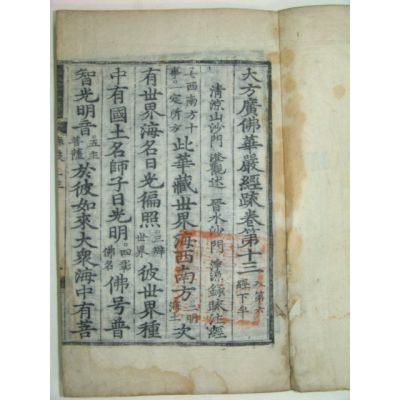 大方廣佛華嚴經䟽卷第十三 入第六經下半
清涼山沙門 澄觀述 晉水沙門 淨源錄䟽注經
此華藏世界海西南方 次
有世界海名日光徧照 三辨世界 彼世界種
中有國土名師子日光明 四彰佛名 佛号普
智光明音 五主菩薩 於彼如來大衆海中有菩